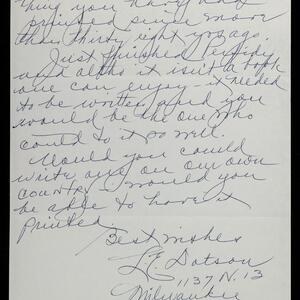 thing you have had
printed since more
than thirty eight yrs ago.
Just finished
and altho it isn't a book
one can enjoy - it needed
to be written and you
would be the one who
could to it so well.
Would you could
write one on our own
country - would you
be able to have it
printed
Best wishes
L E. Dotson
1137 N. 13
Milwaukee